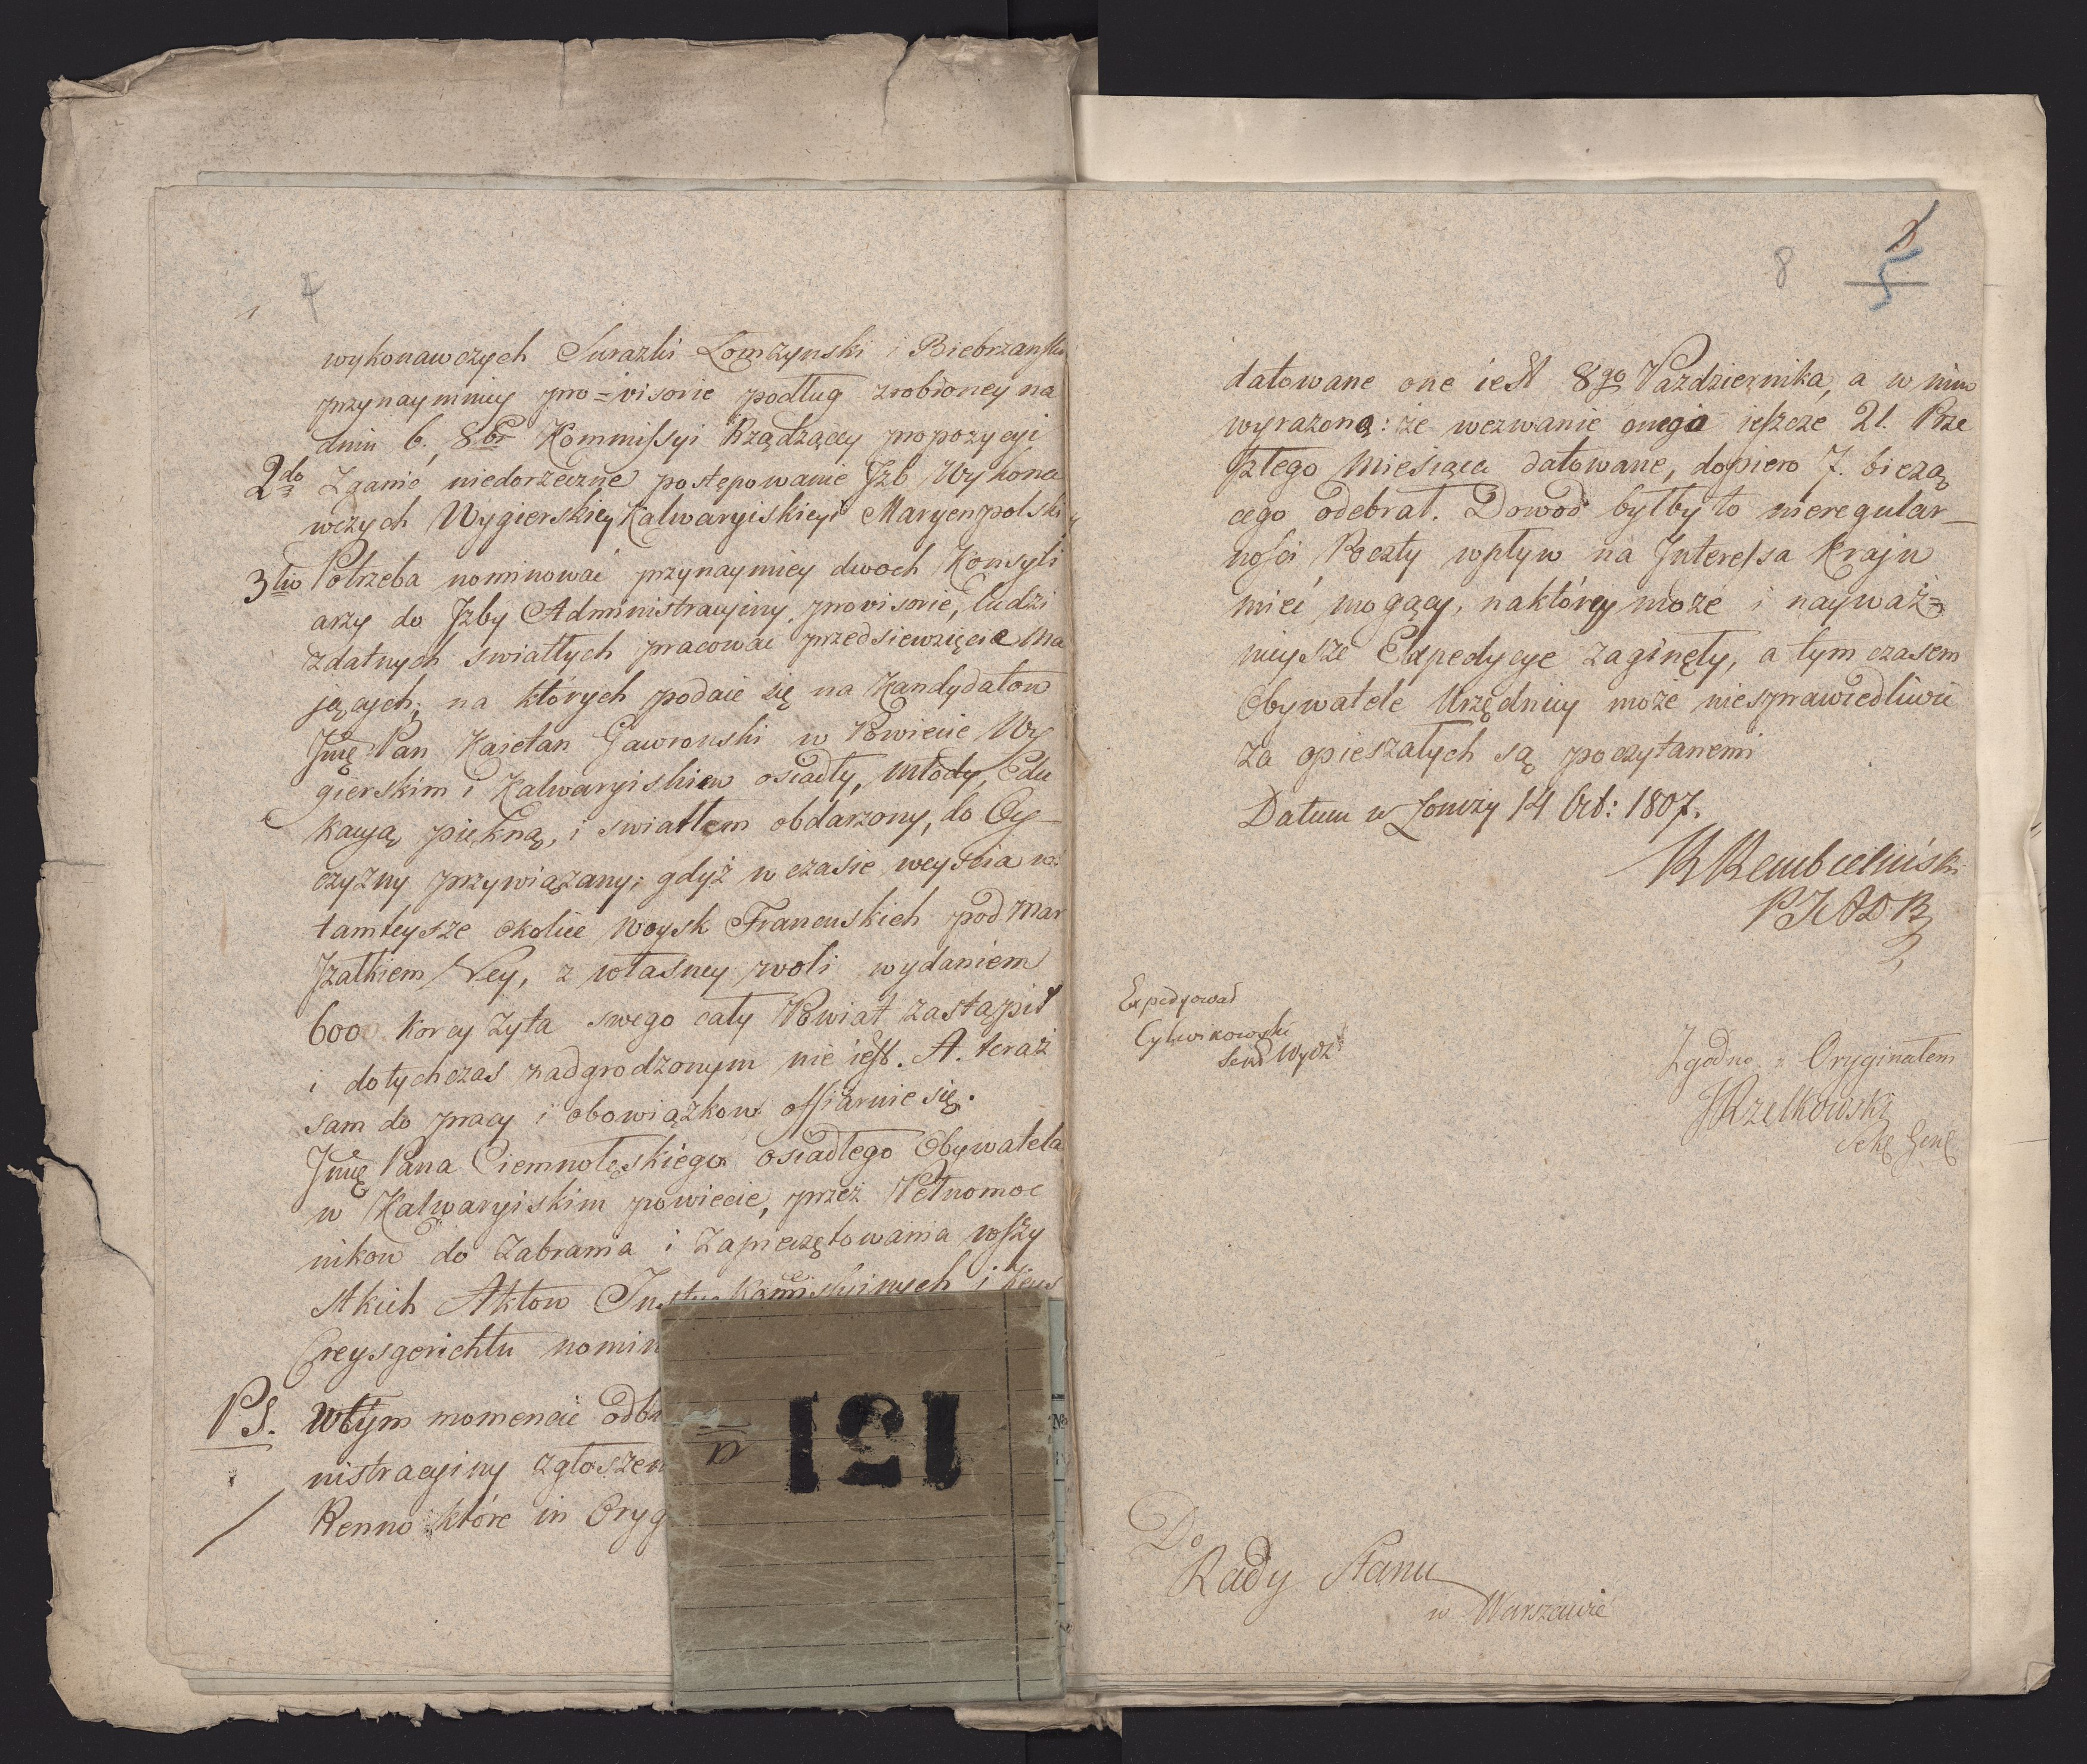 4
wykonawczych Surazki Łomżynski i Biebrzanski
przynaymniey pro=visorie podług zrobioney na
dniu 6. 8br Kommissyi Rządzącey propozycyi
2do Zganić niedorzeczne postępowanie Jzb Wykona
wczych Wygierskiey Kalwaryiskiey i Maryenpolski
3tio Potrzeba nominować przynaymiey dwoch Konsyli
arzy do Jzby Administracyiny provisorie, ludzi
zdatnych swiatłych pracować przedsiewzięcie ma
jących; na których podaie się na Kandydatow
Jmę Pan Kaietan Gawronski w Powiecie Wy
gierskim i Kalwaryiskiem osiadły, młody, Edu
kacyą piękną, i swiatłem obdarzony, do Oy
czyzny przywiązany; gdyż w czasie weyścia w
tamteysze okolice woysk Francuskich pod Mar
szałkiem Ney, z własney woli wydaniem
6000 korcy żyta swego cały Powiat zastąpił
i dotychczas nadgrodzonym nie iest. A. teraz
sam do pracy i obowiązkow offiaruie się.
Jmę Pana Ciemnołęskiego osiadłego Obywatela
w Kalwaryiskim powiecie, przez Pełnomoc
nikow do Zabrania i Zapieczętowania wszy
stkich Aktow i
Creysgerichtu nomin
PS. Wtym momencie odb
nistracyiny zgłoszen
Renno które in Oryg
151
8
5
datowane one iest 8go Pazdziernika, a w nim
wyrażono: że wezwanie onego ieszcze 21. Prze
szłego Miesiąca datowane, dopiero 7. bieżą
cego odebrał. Dowod byłby to nieregular_
nosci Poczty wpływ na Interessa Kraju
mieć mogący, na którey może i nayważ=
nieysze Expedycye zaginęły, a tym czasem
Obywatele Urzędnicy może niesprawiedliwie
za opieszałych są poczytanemi
Datum w Łomży 14 Oct: 1807.
R Rembieliński
P I A D B
Expedyował
Cylwikowski
Sekr Wydz
Zgodno z Oryginałem
JRzętkowski
Sekr Gen
Do
Rady Stanu
w Warszawie